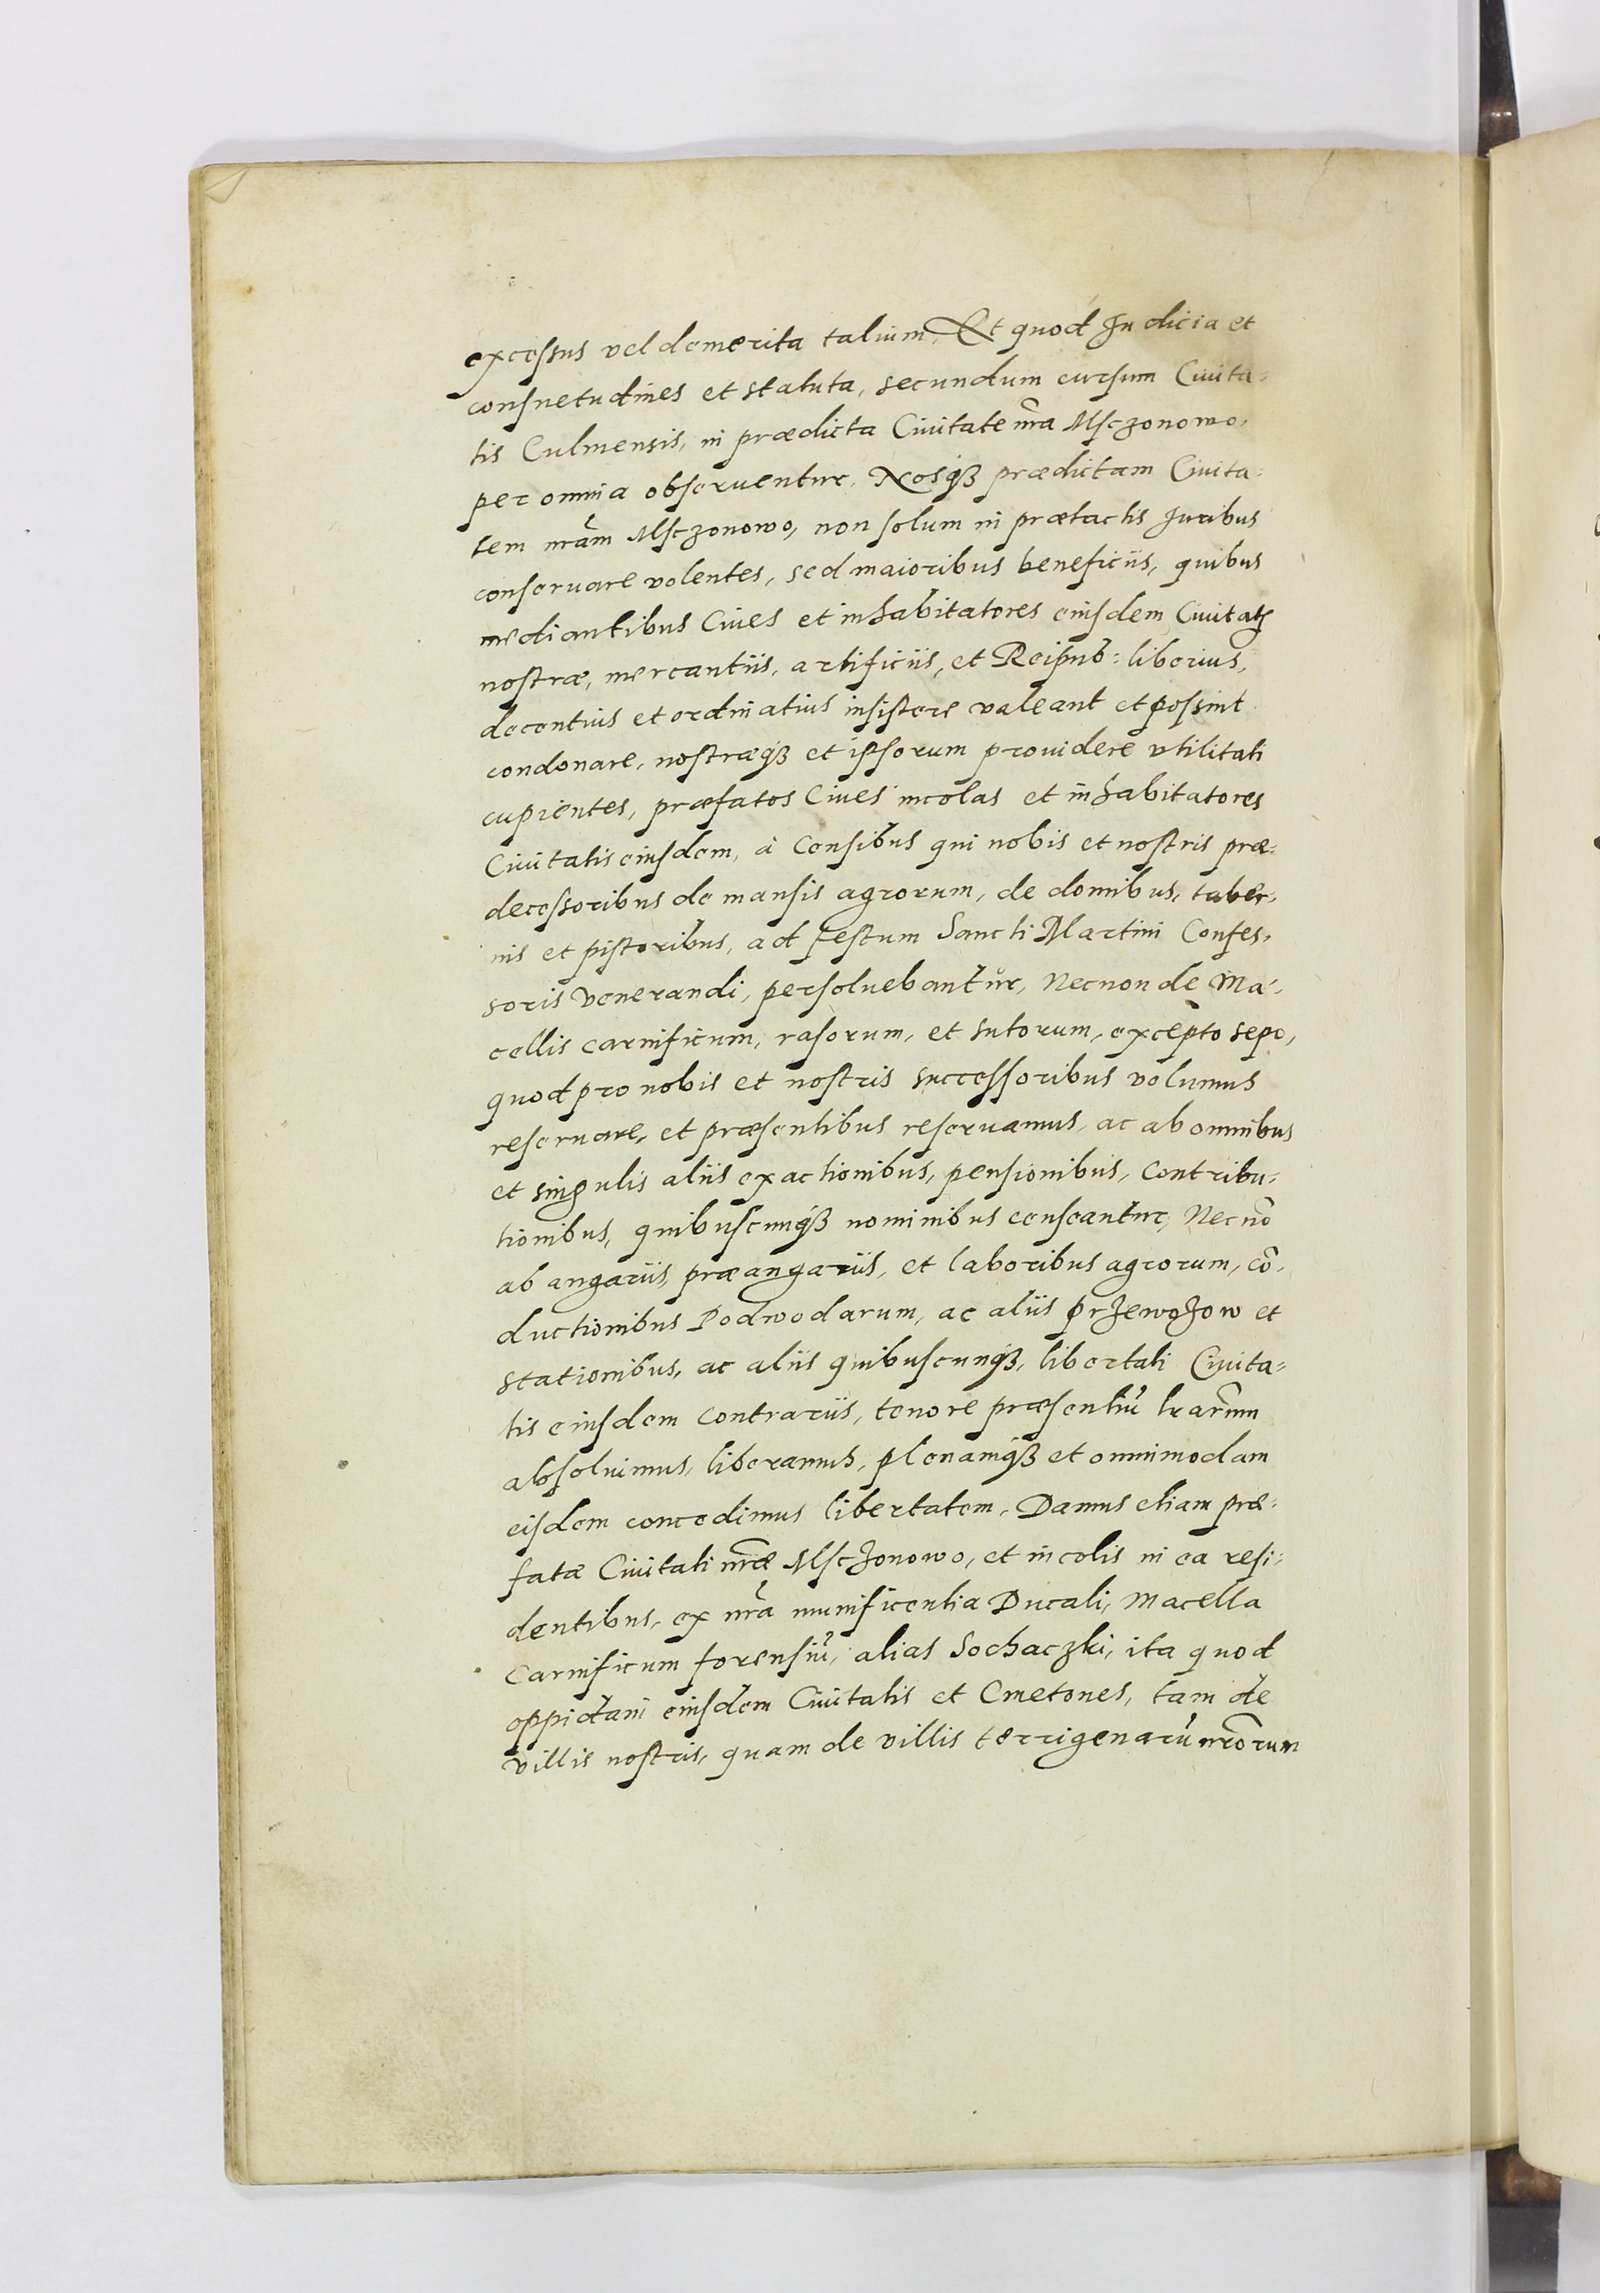 excessus vel demerita talium. Et quod Judicia et
consuetudines et statuta, secundum cursum Ciuita-
tis Culmensis, in prædicta Ciuitate nr̃a Msczonowo,
per omnia obseruentur. Nosq₃ prædictam Ciuita-
tem nr̃am Msczonowo, non solum in prætactis Juribus
conseruare volentes, sed maioribus beneficiis, quibus
mediantibus Ciues et inhabitatores eiusdem Ciuitatis
nostræ, mercantiis, artificiis, et Reipub: liberius,
decentius et ordinatius insistere valeant et possint
condonare, nostræq₃ et ipsorum prouidere vtilitati
cupientes, præfatos Ciues incolas et inhabitatores
Ciuitatis eiusdem, à Censibus qui nobis et nostris præ-
decessoribus de mansis agrorum, de domibus, taber-
nis et pistoribus, ad festum Sancti Martini Confes-
soris Venerandi, persoluebantur, Necnon de Ma-
cellis carnificum, rasorum, et sutorum, excepto sepo,
quod pro nobis et nostris successoribus volumus
reseruare, et præsentibus reseruamus, ac ab omnibus
et singulis aliis exactionibus, pensionibus, Contribu-
tionibus, quibuscunq₃ nominibus censeantur, Necnō
ab angariis, præangariis, et laboribus agrorum, cō-
ductionibus Podwodarum, ac aliis przewozow et
stationibus, ac aliis quibuscunq₃, libertati Ciuita-
tis eiusdem contrariis, tenore præsentiū lr̃arum
absoluimus, liberamus, plenamq₃ et omnimodam
eisdem concedimus libertatem. Damus etiam præ-
fatæ Ciuitati nr̃æ Msczonowo, et incolis in ea resi-
dentibus, ex nr̃a munificentia Ducali, Macella
Carnificum forensiū, alias Sochaczki, ita quod
oppidani eiusdem Ciuitatis et Cmetones, tam de
villis nostris, quam de villis terrigenarū nr̃orum